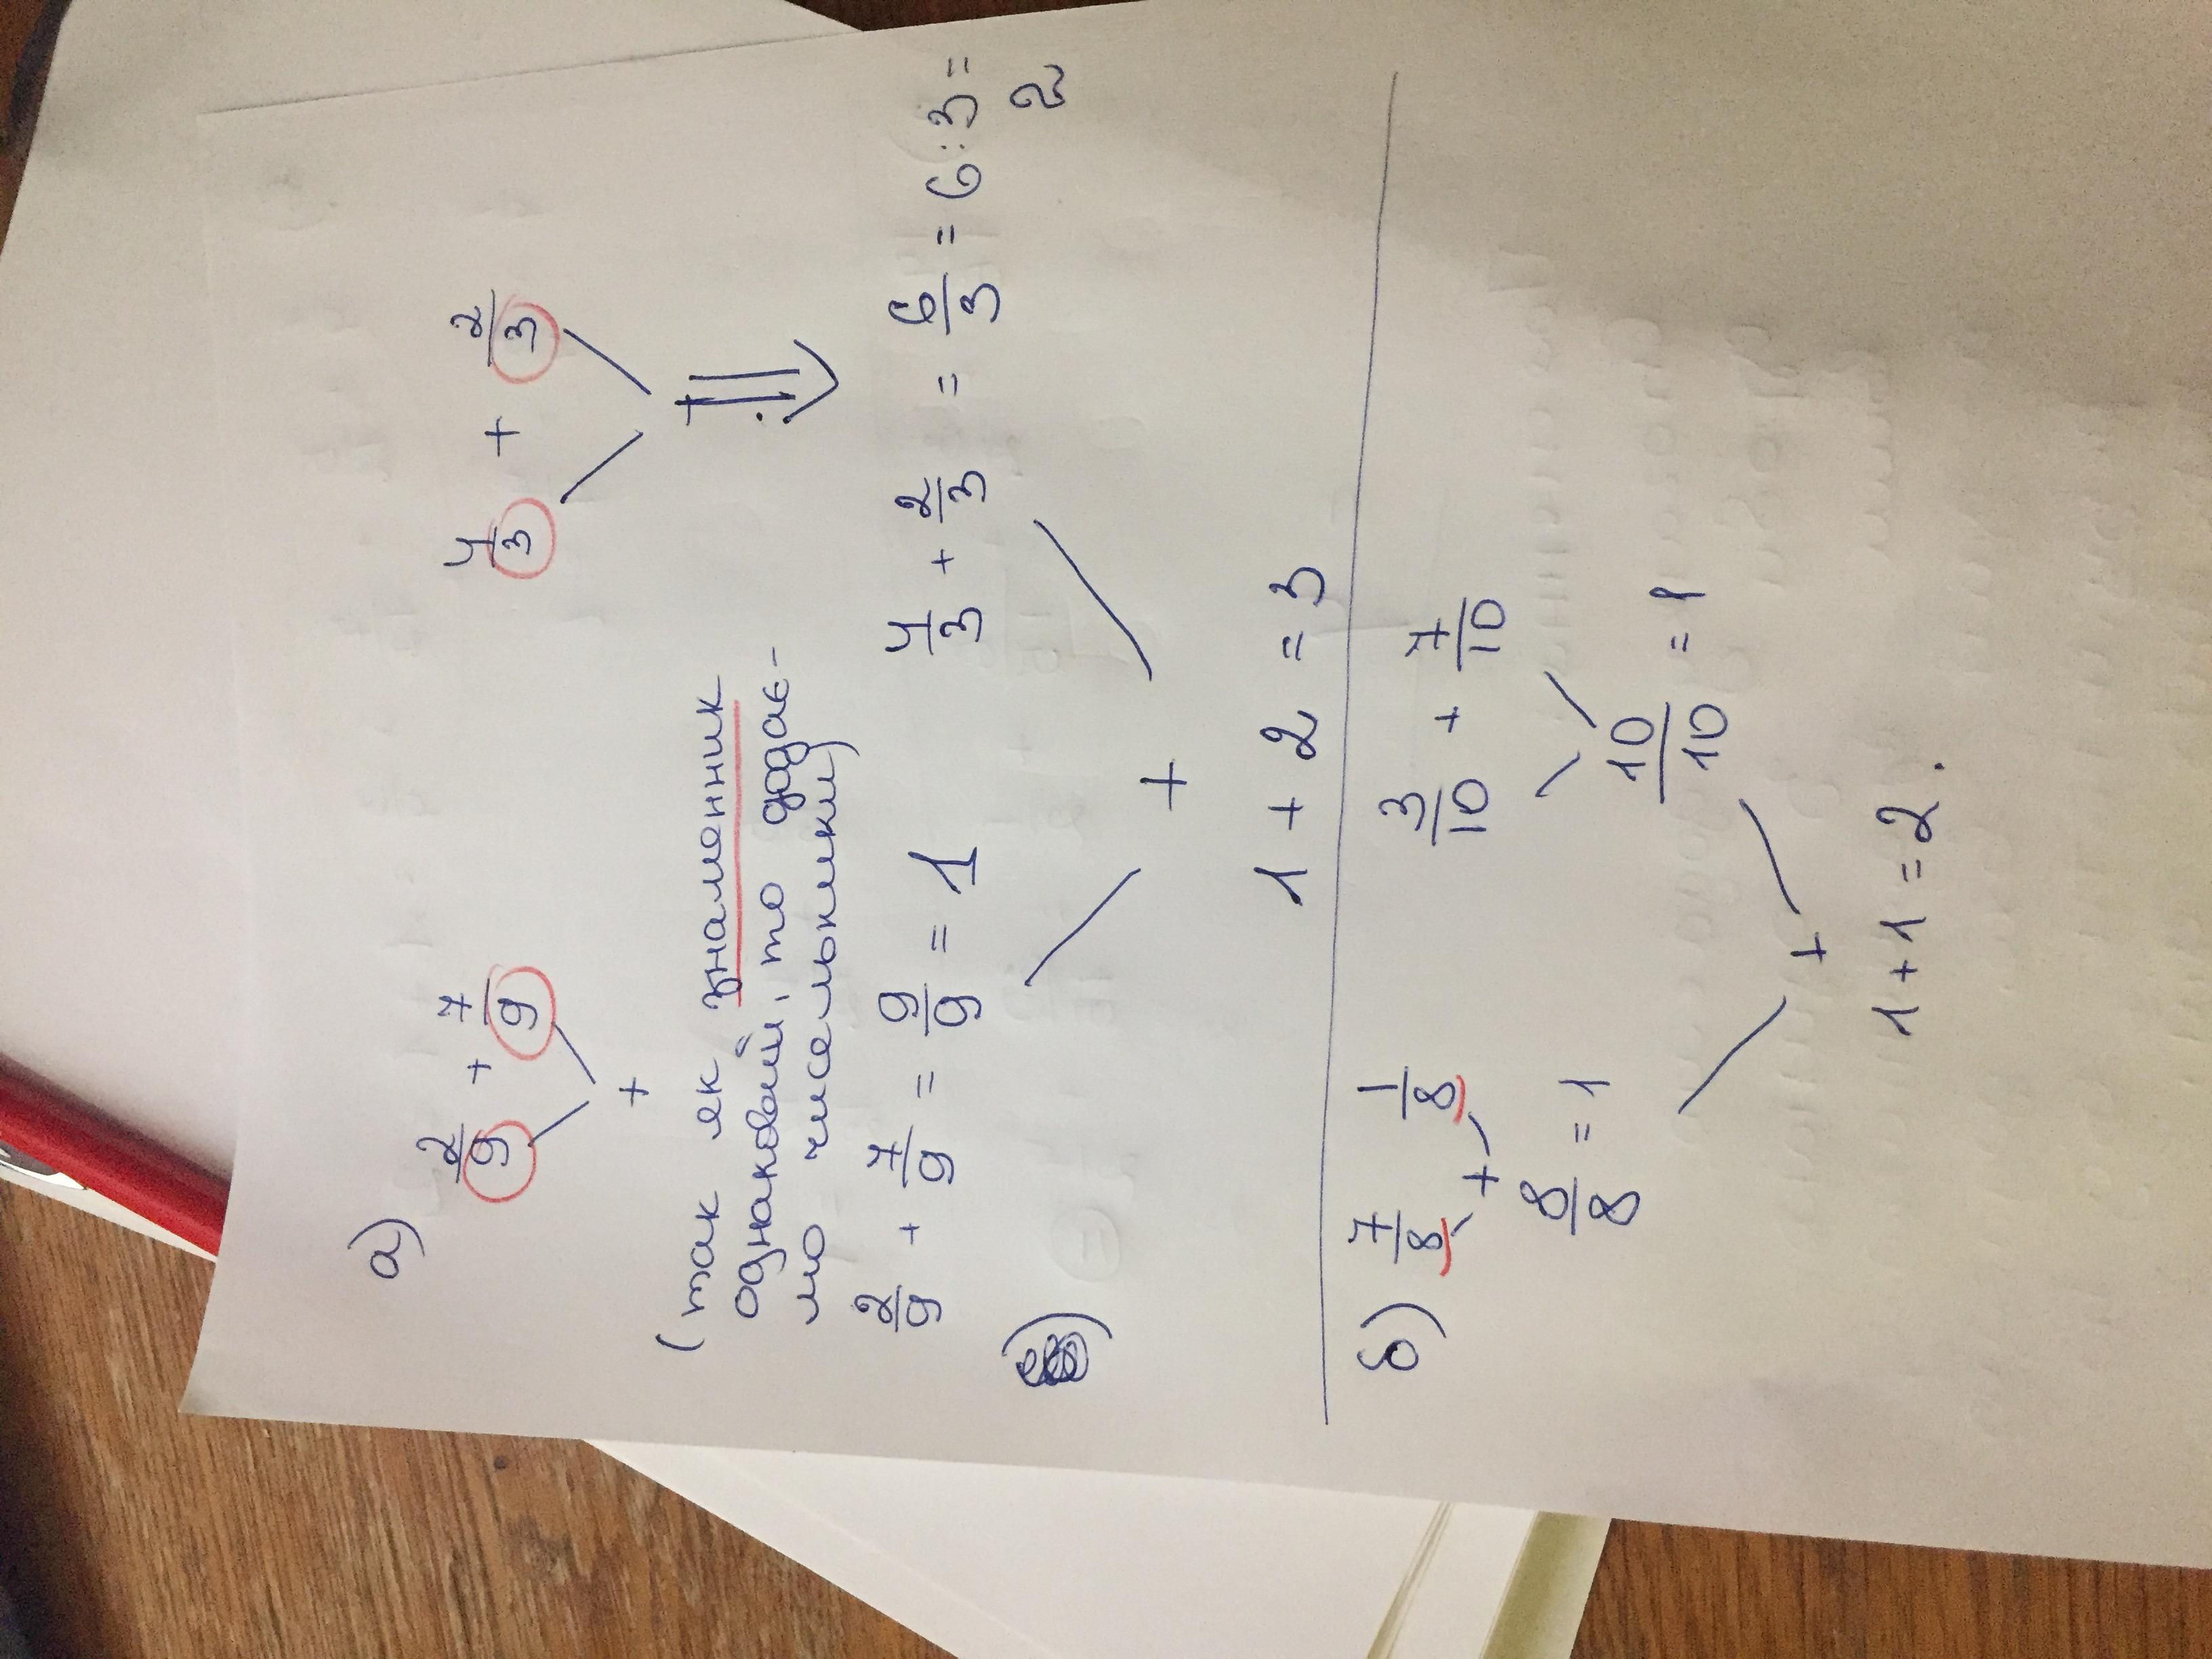 а) 2/9 + 7/9    4/3 + 2/3
+    +
(так як знаменник
однаковий, то додає-
мо чисельники)
2/9 + 7/9 = 9/9 = 1    4/3 + 2/3 = 6/3 = 6:3=
2
+
1 + 2 = 3
б) 7/8 + 1/8    3/10 + 7/10
8/8 = 1    10/10 = 1
+
1+1=2.